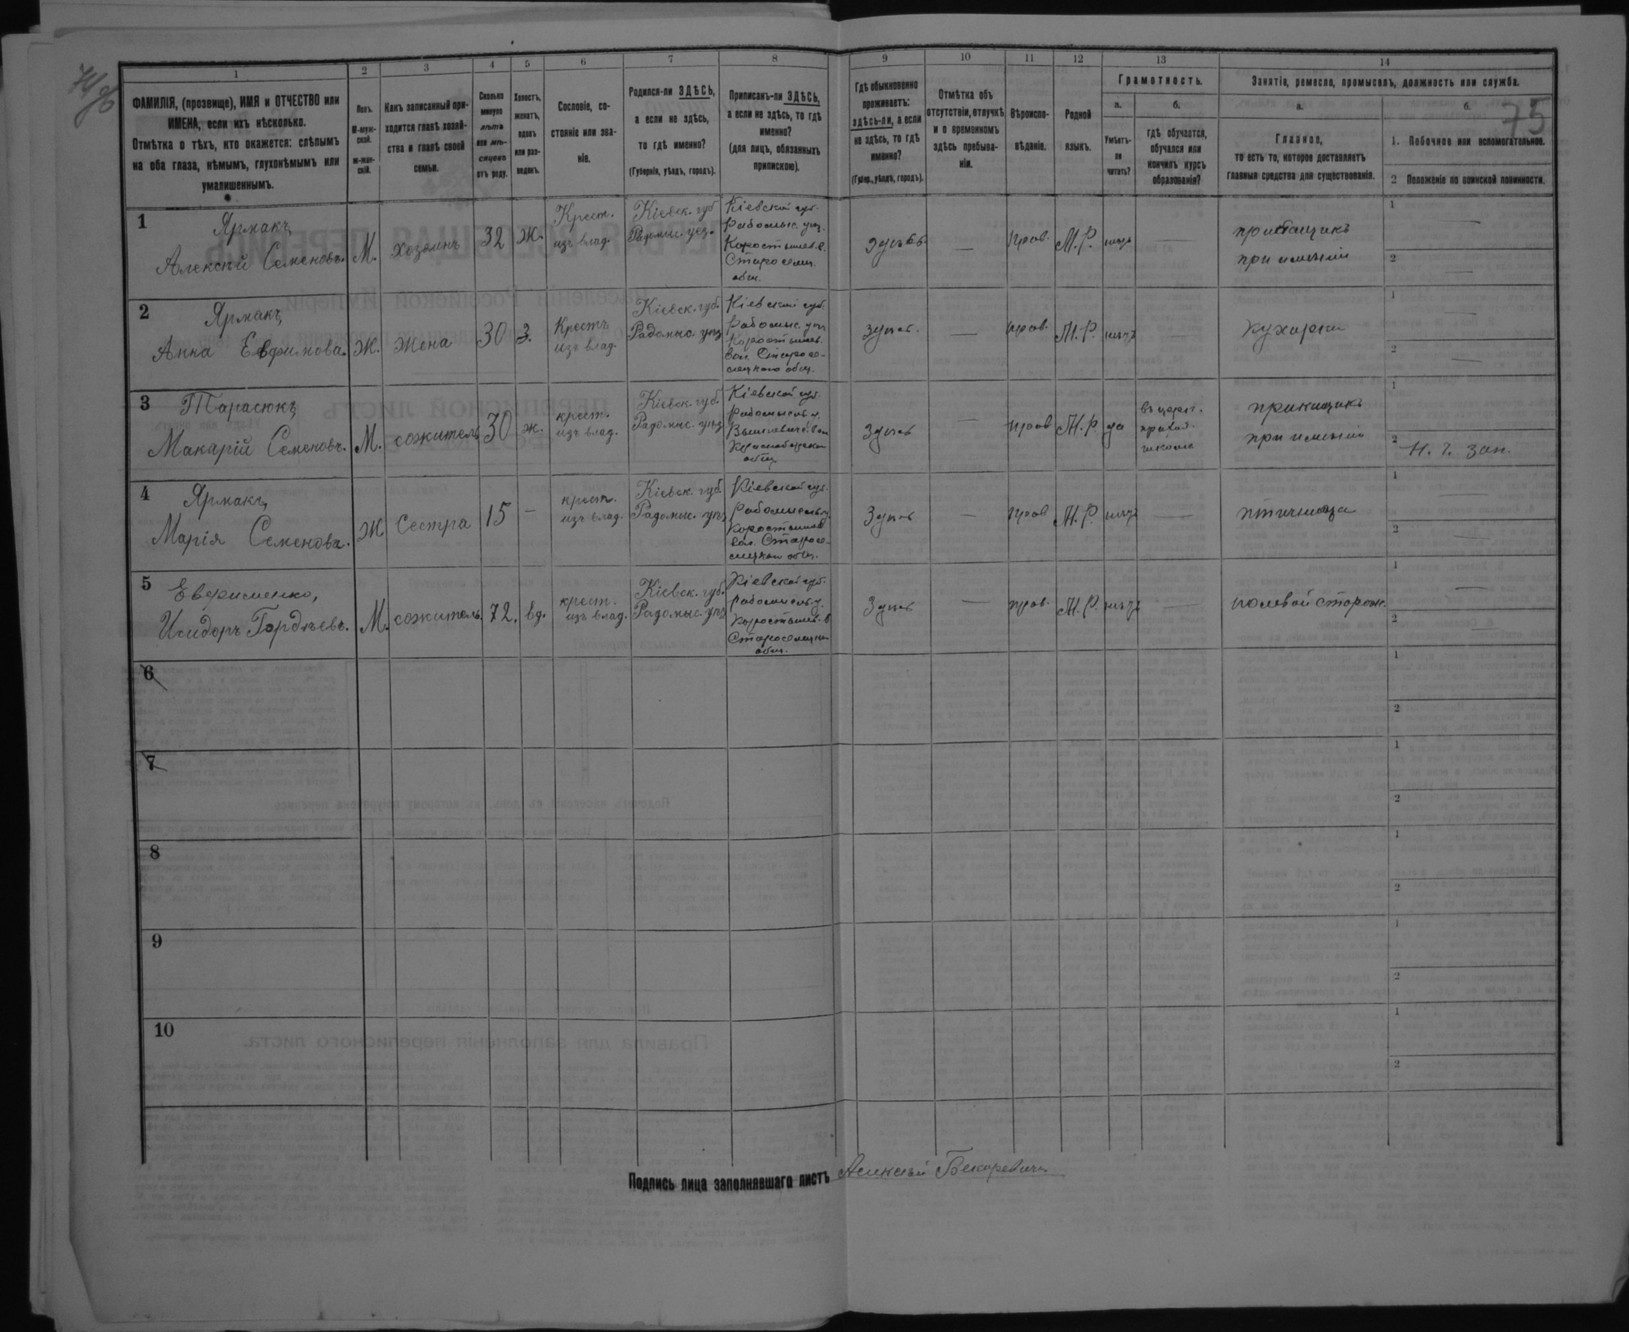 75
1
2
3
4
5
6
7
8
9
10
11
12
13
14
ФАМИЛІЯ, (прозвище), ИМЯ и ОТЧЕСТВО или
ИМЕНА, если ихъ нѣсколько.
Отмѣтка о тѣхъ, кто окажется: слѣпымъ
на оба глаза, нѣмымъ, глухонѣмымъ или
умалишеннымъ.
Полъ.
М-муж-
ской.
Ж-жен-
скій.
Какъ записанный при-
ходится главѣ хозяй-
ства и главѣ своей
семьи.
Сколько
минуло
лѣтъ
или мѣ-
сяцевъ
отъ роду.
Холостъ,
женатъ,
вдовъ
или раз-
веденъ.
Сословіе, со-
стояніе или зва-
ніе.
Родился-ли ЗДѢСЬ,
а если не здѣсь,
то гдѣ именно?
(Губернія, уѣздъ, городъ).
Приписанъ-ли ЗДѢСЬ,
а если не здѣсь, то гдѣ
именно?
(для лицъ, обязанныхъ
припискою).
Гдѣ обыкновенно
проживаетъ:
здѣсь-ли, а если
не здѣсь, то гдѣ
именно?
(Губер., уѣздъ, городъ).
Отмѣтка объ
отсутствіи, отлучкѣ
и о временномъ
здѣсь пребыва-
ніи.
Вѣроиспо-
вѣданіе.
Родной
языкъ.
Грамотность.
а.
Умѣетъ-
ли
читать?
б.
гдѣ обучается,
обучался или
кончилъ курсъ
образованія?
Занятіе, ремесло, промыселъ, должность или служба.
а.
Главное,
то есть то, которое доставляетъ
главныя средства для существованія.
б.
1. Побочное или вспомогательное.
2 Положеніе по воинской повинности.
1
Ярмакъ,
Алексѣй Семеновъ.
М.
хозяинъ
32
ж.
Крест.
изъ влад.
Кіевск. губ
Кіевской губ.
Старосел.
общ.
здѣсь
—
прав.
М.Р.
нѣтъ
при имѣніи
1
—
2
—
2
Ярмакъ,
Анна Евфимова.
Ж.
жена
30
з.
Крестъ.
изъ влад.
Кіевск. губ.
Радомыс. уѣз
Кіевской губ.
здѣсь.
—
прав.
М.Р.
нѣтъ
—
кухарка
1
—
2
—
3
Тарасюкъ
Макарій Семеновъ.
М.
сожитель
30
ж.
крест.
изъ влад.
Кіевск. губ.
Радомыс. уѣз
Кіевской губ.
общ
здѣсь
—
прав
М.Р
да
въ церк.-
приход.
школѣ
при имѣніи
1
2
Н. ч. зап.
4
Ярмакъ,
Марія Семенова.
Ж
Сестра
15
—
крест.
изъ влад.
Кіевск. губ.
Радомыс. уѣз
Кіевской губ.
здѣсь
—
прав
М.Р.
нѣтъ
—
птичница
1
—
2
—
5
Евфименко,
Исидоръ Гордѣевъ.
М.
сожитель
72.
вд.
крест.
изъ влад.
Кіевск. губ.
Радомыс. уѣз
Кіевской губ.
общ.
здѣсь
—
прав.
М.Р.
нѣтъ
—
полевой сторож.
1
—
2
—
6
1
2
7
1
2
8
1
2
9
1
2
10
1
2
Подпись лица заполнявшаго листъ
Алексѣй